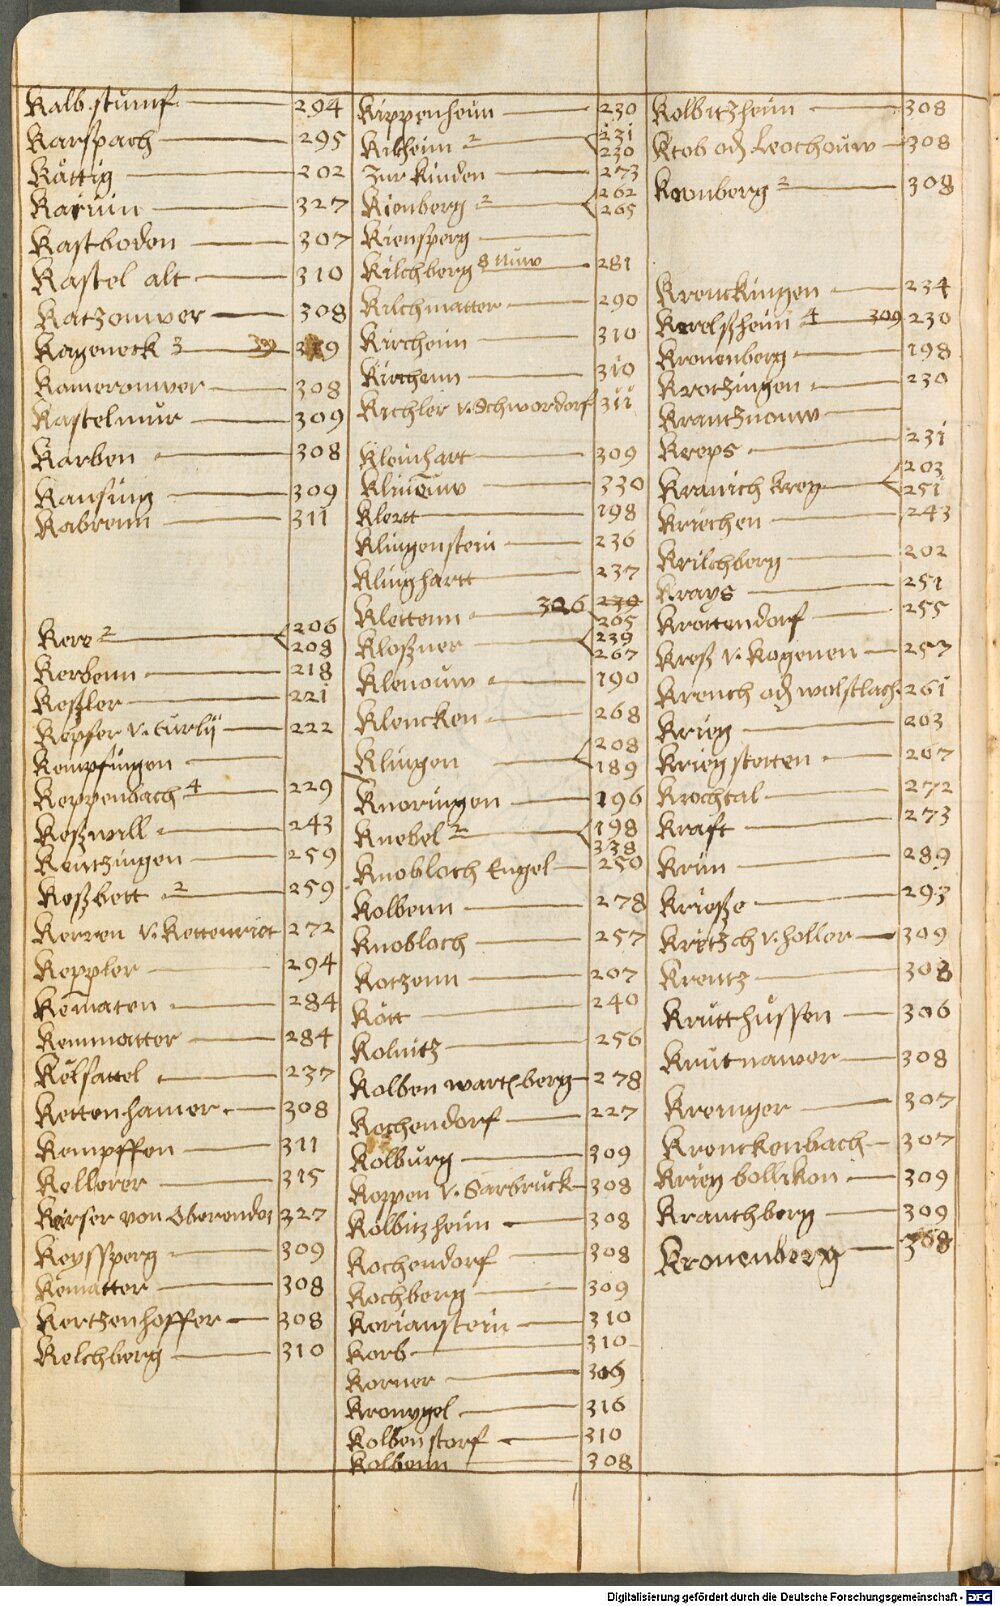 Kalb stumf 294
Karspach 295
Kättig 202
Karium 327
Kastboden 307
Kastel alt 310
Katzomver 308
Kageneck 3
Kameromver 308
Kastelmur 309
Karben 308
Kansing 309
Kabrenn 311
Kere 2 206
208
Kerbenn 218
Keszler 221
Kepfer v. Turly 222
Kempfingen
Keppenbach 4 229
Keszwill 243
Kentzingen 259
Keszbett 2 259
Kerren v. Kettenriet 272
Keppler 294
Kematen 284
Kemmatter 284
Kelsattel 237
Kettenhamer 308
Kempffen 311
Kellerer 315
Keirser von Oberendor 327
Keyssperg 309
Kematter 308
Kertzenhoffer 308
Kelchberg 310
Kippenheim 230
Kilheim 2 231
230
Zur Kinden 273
Kienberg 2 262
265
Kiensperg
Kilchberg 8 nuw 281
Kilchmatter 290
Kirchein 310
Kirchenn 310
Kichler v. Schwordorf 311
Kleinhart 309
Klinouw 330
Klett 198
Klingenstein 236
Klinghartt 237
Klettenn 326 239
265
Kloszner 239
267
Klenouw 190
Klencken 268
Klingen 208
189
Knoringen 196
Knebel 2 198
338
Knobloch Engel 250
Kolbenn 278
Knobloch 257
Kotzenn 207
Kött 240
Kolnitz 256
Kolben wartberg 278
Kochendorf 227
Kolburg 309
Koppen v. Sarbruck 308
Kolbitzheim 308
Kochendorf 308
Kochberg 309
Korianstein 310
Korb 310
Korner 306
Kronygel 316
Kolbenstorf 310
Kolbenn 308
Kolbitzheim 308
Ktob od Leochouw 308
Kronberg 2 308
Krenckingen 234
Krelssheim 4 309 230
Kronenberg 198
Krotzingen 230
Krantznouw
Kreps 231
Kranich Kreg 203
251
Kriechen 243
Krilchberg 202
Krays 251
Krottendorf 255
Kresz v. Kogenen 257
Krench od wolfslach 261
Krieg 203
Kriegstetten 207
Krochtal 272
Kraft 273
Krim 289
Kriesze 293
Kritzch v. holler 309
Krentz 308
Krutthussen 306
Krutnawer 308
Kreniger 307
Kronckenbach 307
Krieg bollikon 309
Kranchberg 309
Kronenberg 308
Digitalisierung gefördert durch die Deutsche Forschungsgemeinschaft - DFG